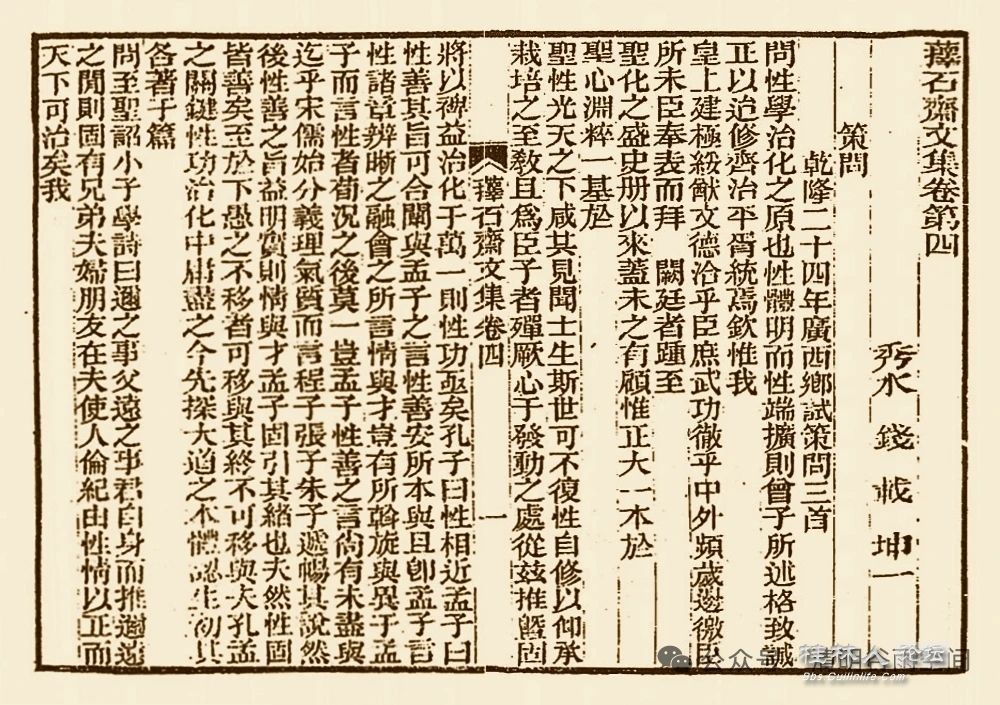 蘀石齋文集卷第四
秀水 錢載 坤一
策問
乾隆二十四年廣西鄉試策問三首
問性學治化之原也性體明而性端擴則曾子所述格致誠
正以迨修齊治平胥統焉欽惟我
皇上建極綏猷文德洽乎臣庶武功徹乎中外頻歲邊徼臣
所未臣奉表而拜 闕廷者踵至
聖化之盛史册以來蓋未之有顧惟正大一本於
聖心淵粹一基於
聖性光天之下咸其見聞士生斯世可不復性自修以仰承
栽培之至敎且爲臣子者殫厥心于發動之處從兹推曁固
蘀石齋文集卷四
一
將以裨益治化于萬一則性功亟矣孔子曰性相近孟子曰
性善其旨可合闡與孟子之言性善安所本與且卽孟子言
性諸章辨晰之融會之所言情與才豈有所斡旋與異于孟
子而言性者荀況之後莫一豈孟子性善之言尙有未盡與
迄乎宋儒始分義理氣質而言程子張子朱子遞暢其說然
後性善之旨益明實則情與才孟子固引其緒也夫然性固
皆善矣至於下愚之不移者可移與其終不可移與夫孔孟
之關鍵性功治化中庸盡之今先探大道之本體認生初其
各著于篇
問至聖詔小子學詩曰邇之事父遠之事君自身而推邇遠
之閒則固有兄弟夫婦朋友在夫使人倫紀由性情以正而
天下可治矣我
公众号
桂林人论坛
gbs.Guilinlife.Com